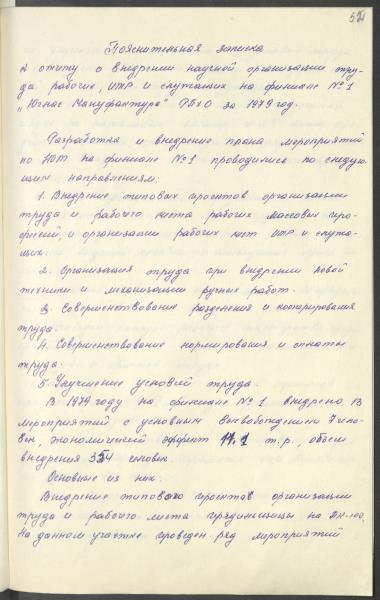 52
Пояснительная записка
к отчету о внедрении научной организации тру-
да рабочих, ИТР и служащих на филиале № 1
"Юглас Мануфактура" РБхО за 1979 год.
Разработка и внедрение плана мероприятий
по НОТ на филиале № 1 проводились по следую-
щим направлениям:
1. Внедрение типовых проектов организации
труда и рабочего места рабочих массовых про-
фессий, и организации рабочих мест ИТР и служа-
щих.
2. Организация труда при внедрении новой
техники и механизации ручных работ.
3. Совершенствование разделения и кооперирования
труда.
4. Совершенствование нормирования и оплаты
труда.
5. Улучшение условий труда.
В 1979 году на филиале № 1 внедрено 13
мероприятий с условным высвобождением 7 чело-
век, экономический эффект 11.1 т.р., объем
внедрения 354 человек.
Основные из них.
Внедрение типового проектов организации
труда и рабочего места прядильщицы на
На данном участке проведен ряд мероприятий